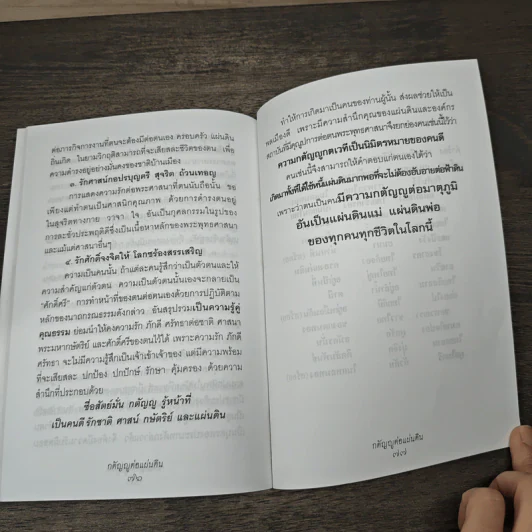 ต่อภารกิจการงานที่ตนจะต้องมีต่อตนเอง ครอบครัว แผ่นดิน
ถิ่นเกิด ในยามวิกฤติสามารถที่จะเสียสละชีวิตของตน เพื่อ
ความดำรงอยู่อย่างมั่นคงของชาติบ้านเมือง
๓. รักศาสน์กอปรบุญตรี สุจริต ถ้วนเทอญ
การแสดงความรักต่อพระศาสนาที่ตนนับถือนั้น ขอ
เพียงแต่ทำตนเป็นศาสนิกคุณภาพ ด้วยการดำรงตนอยู่
ในสุจริตทางกาย วาจา ใจ อันเป็นกุศลกรรมในรูปของ
การละชั่วประพฤติดีซึ่งเป็นเนื้อหาหลักของพระพุทธศาสนา
และแม้แต่ศาสนาอื่นๆ
๔. รักศักดิ์จงจิตให้ โลกซร้องสรรเสริญ
ความเป็นคนนั้น ถ้าแต่ละคนรู้สึกว่าเป็นตัวตนและให้
ความสำคัญแก่ตัวตน ความเป็นตัวตนนั้นเองจะกลายเป็น
"ศักดิ์ศรี" การทำหน้าที่ของตนต่อตนเองด้วยการปฏิบัติตาม
หลักของนาถกรณธรรมดังกล่าว อันสรุปรวมเป็นความรู้คู่
คุณธรรม ย่อมนำให้คงความรัก ภักดี ศรัทธาต่อชาติ ศาสนา
พระมหากษัตริย์ และศักดิ์ศรีของตนไว้ได้ เพราะความรัก ภักดี
ศรัทธา จะไม่มีความรู้สึกเป็นเจ้าเข้าเจ้าของ แต่มีความพร้อม
ที่จะเสียสละ ปกป้อง ปกปักษ์ รักษา คุ้มครอง ด้วยความ
สำนึกที่ประกอบด้วย
ซื่อสัตย์มั่น กตัญญู รู้หน้าที่
เป็นคนดี รักชาติ ศาสน์ กษัตริย์ และแผ่นดิน
กตัญญูต่อแผ่นดิน
๗๖
ทำให้การเกิดมาเป็นคนของท่านผู้นั้น ส่งผลช่วยให้เป็น
พลเมืองดี เพราะมีความสำนึกคุณของแผ่นดินและองค์กร
สถาบันที่มีคุณูปการต่อตนพระพุทธศาสนาจึงยกย่องคนเช่นนี้ไว้ว่า
ความกตัญญูกตเวทีเป็นนิมิตหมายของคนดี
คนเช่นนี้จึงสามารถให้คำตอบแก่ตนเองได้ว่า
เกิดมาทั้งทีได้ใช้หนี้แผ่นดินมากพอที่จะไม่ต้องอับอายต่อฟ้าดิน
เพราะว่าตนเป็นคนมีความกตัญญูต่อมาตุภูมิ
อันเป็นแผ่นดินแม่ แผ่นดินพ่อ
ของทุกคนทุกชีวิตในโลกนี้
กตัญญูต่อแผ่นดิน
๗๗